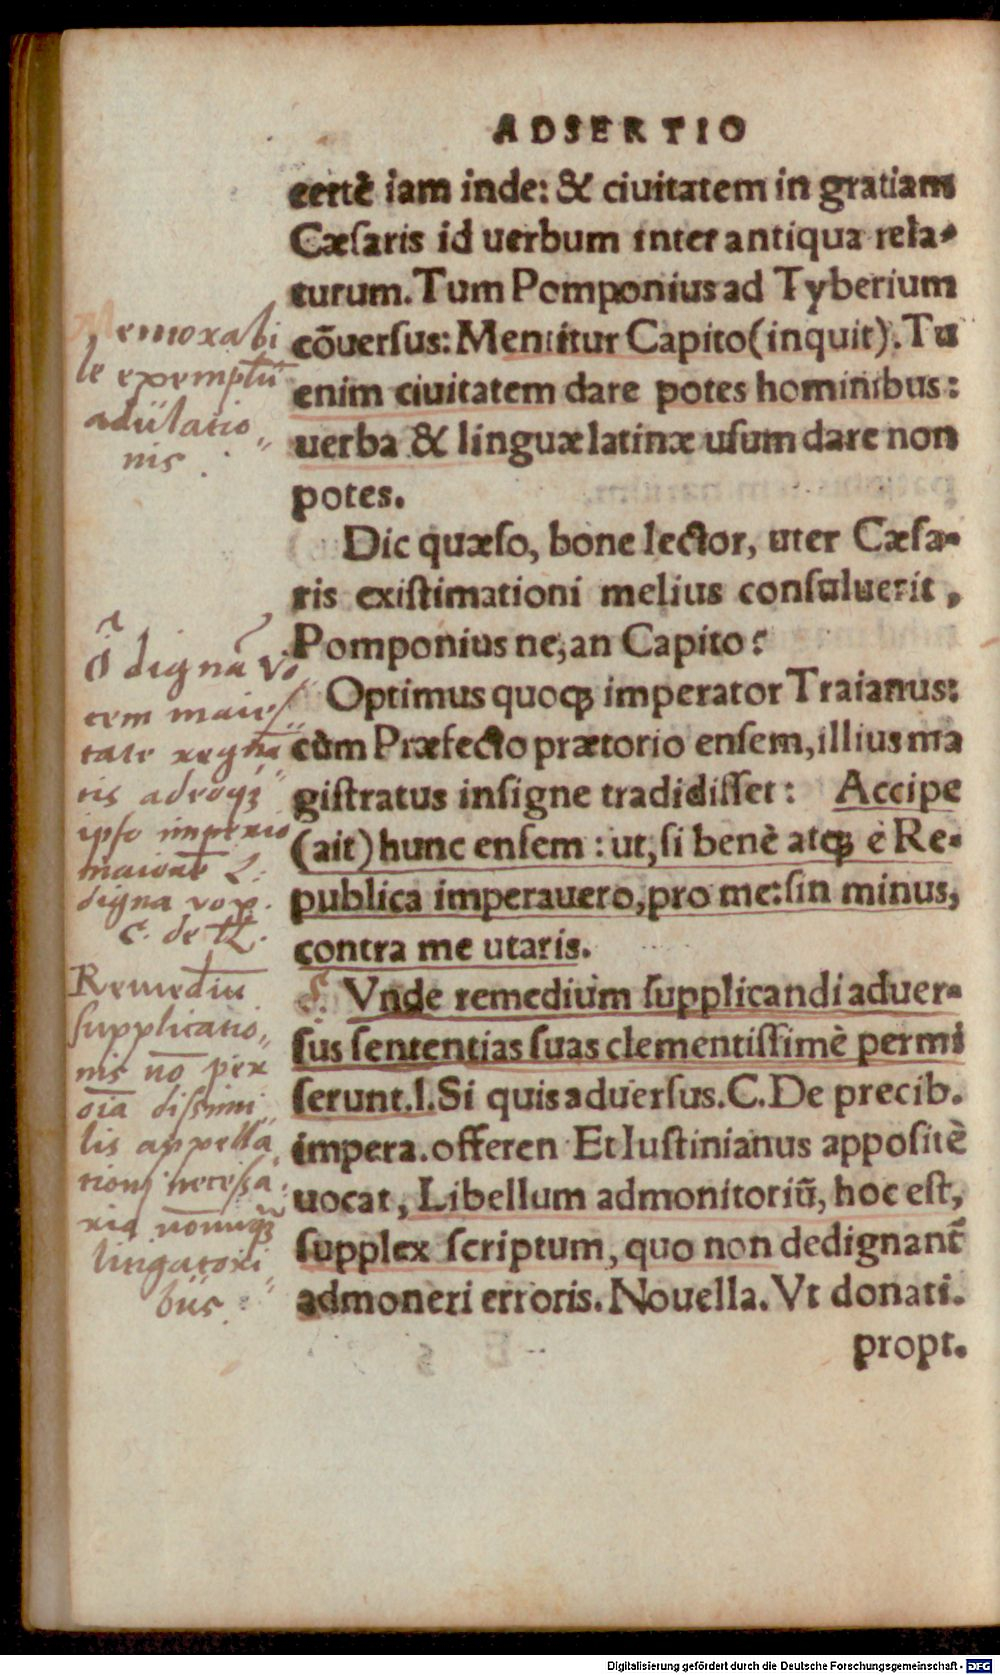 ADSERTIO
certè iam inde: & ciuitatem in gratiam
Cæsaris id uerbum inter antiqua rela-
turum. Tum Pomponius ad Tyberium
cōuersus: Mentitur Capito (inquit). Tu
enim ciuitatem dare potes hominibus:
uerba & linguæ latinæ usum dare non
potes.
Dic quæso, bone lector, uter Cæsa-
ris existimationi melius consuluerit,
Pomponius ne, an Capito?
Optimus quoqȝ imperator Traianus:
cùm Præfecto prætorio ensem, illius ma
gistratus insigne tradidisset: Accipe
(ait) hunc ensem: ut, si benè atqȝ è Re-
publica imperauero, pro me: sin minus,
contra me utaris.
Vnde remedium supplicandi aduer-
sus sententias suas clementissimè permi
serunt. l. Si quis aduersus. C. De precib.
impera. offeren Et Iustinianus appositè
uocat, Libellum admonitoriū, hoc est,
supplex scriptum, quo non dedignant̃
admoneri erroris. Nouella. Vt donati.
propt.
Memorabi
le exemplū
adulatio
nis.
O dignā vo
cem maies
tate regnā
tis adeoqȝ
ipso imperio
maiorē L.
digna vox.
C. de ll.
Remediū
supplicatio
nis nō per
oīa dissimi
lis appella
tioni necessa
ria
litigatori
bus.
Digitalisierung gefördert durch die Deutsche Forschungsgemeinschaft - DFG